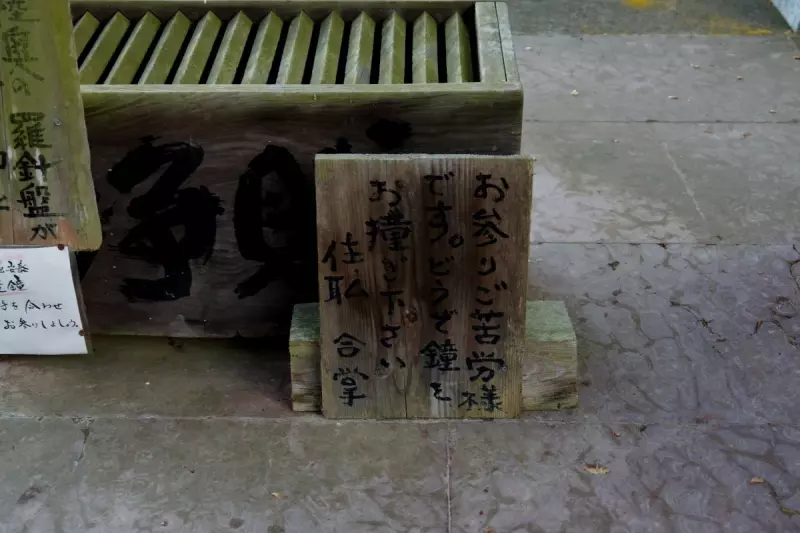 お参りご苦労様
です。どうぞ鐘を
お撞き下さい
住職 合掌
浄財
羅針盤が
を合わせ
お参りしましょう。